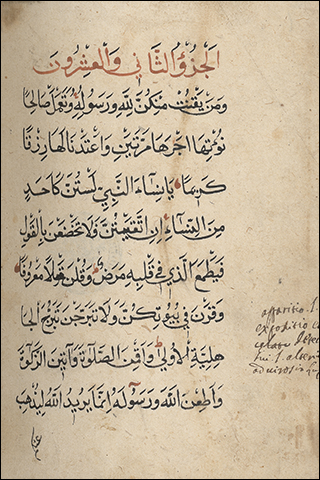 الجزؤ الثاني والعشرون
ومن يقنت منكن لله ورسوله وتعمل صالحا
نؤتها اجرها مرتين واعتدنا لها رزقا
كريما يا نساء النبي لستن كاحد
من النساء ان اتقيتن ولا تخضعن بالقول
فيطمع الذي في قلبه مرض وقلن قولا معروفا
وقرن في بيوتكن ولا تبرجن تبرج الجا
هلية الاولى واقمن الصلوة وآتين الزكوة
واطعن الله ورسوله انما يريد الله ليذهب
عنكم
expositio